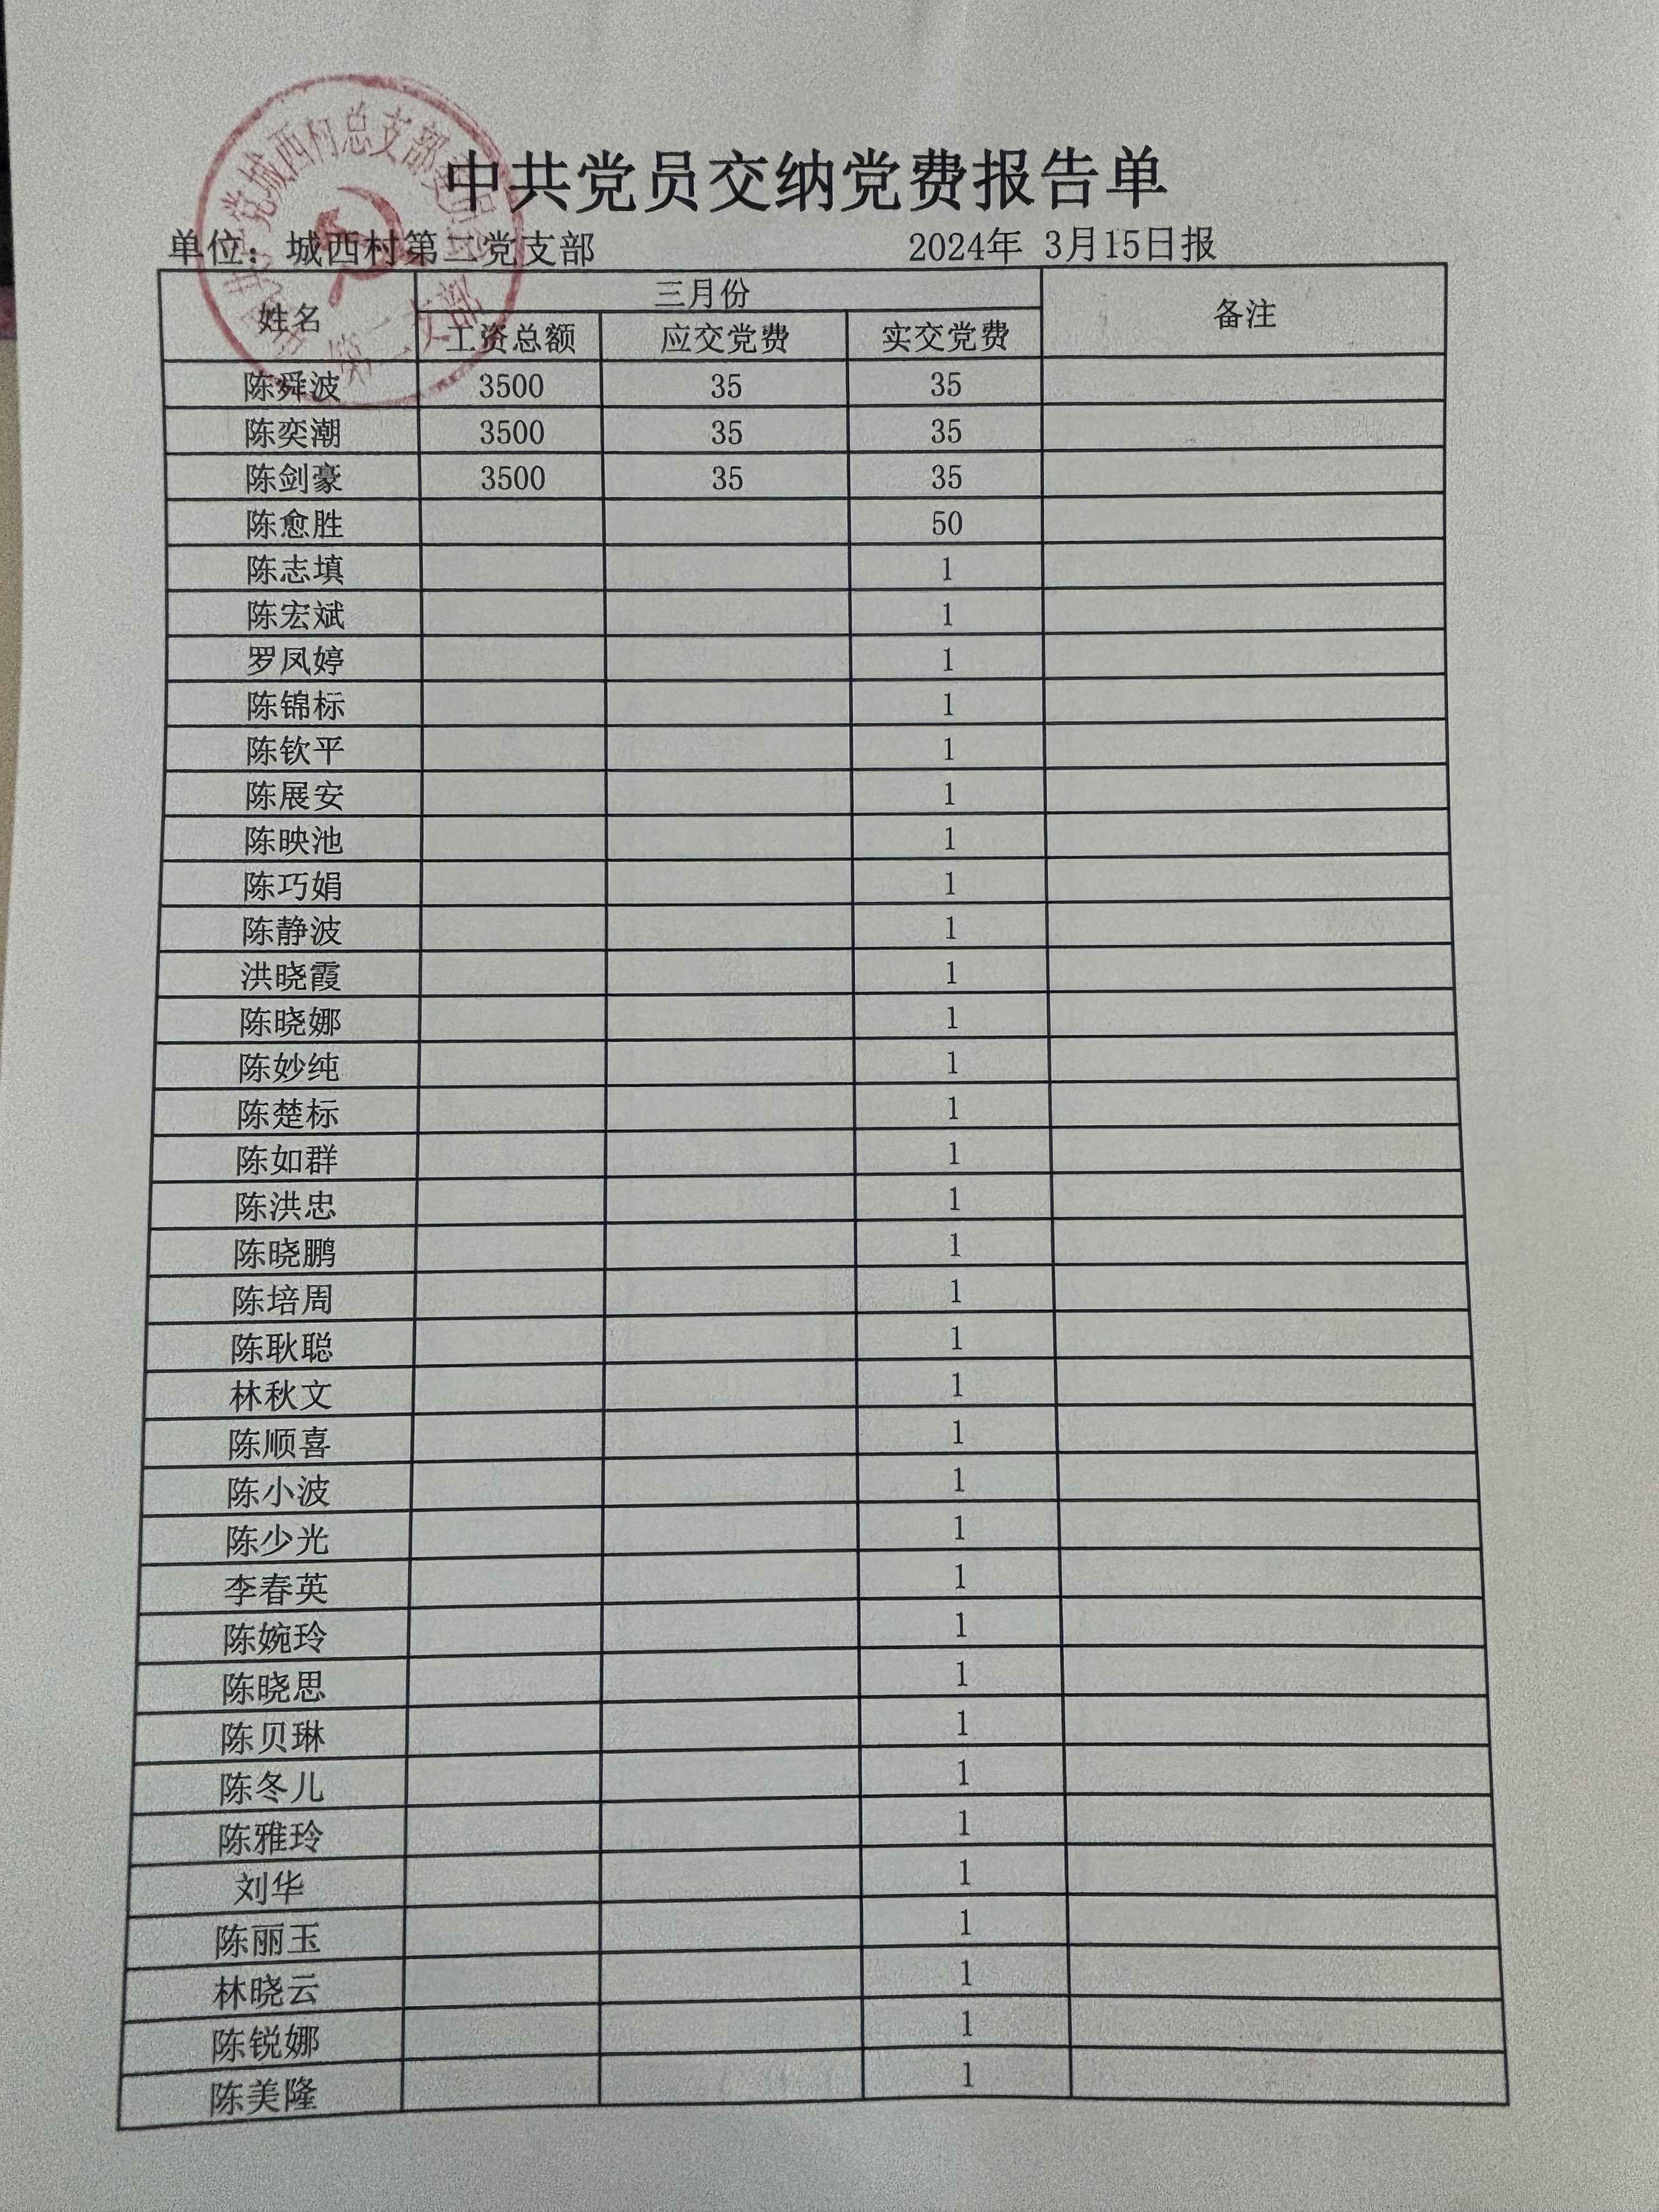 中共党员交纳党费报告单
单位：城西村第二党支部 2024年 3月15日报
姓名 三月份 备注
工资总额 应交党费 实交党费
陈舜波 3500 35 35
陈奕潮 3500 35 35
陈剑豪 3500 35 35
陈愈胜 50
陈志填 1
陈宏斌 1
罗凤婷 1
陈锦标 1
陈钦平 1
陈展安 1
陈映池 1
陈巧娟 1
陈静波 1
洪晓霞 1
陈晓娜 1
陈妙纯 1
陈楚标 1
陈如群 1
陈洪忠 1
陈晓鹏 1
陈培周 1
陈耿聪 1
林秋文 1
陈顺喜 1
陈小波 1
陈少光 1
李春英 1
陈婉玲 1
陈晓思 1
陈贝琳 1
陈冬儿 1
陈雅玲 1
刘华 1
陈丽玉 1
林晓云 1
陈锐娜 1
陈美隆 1
党城西村总支部